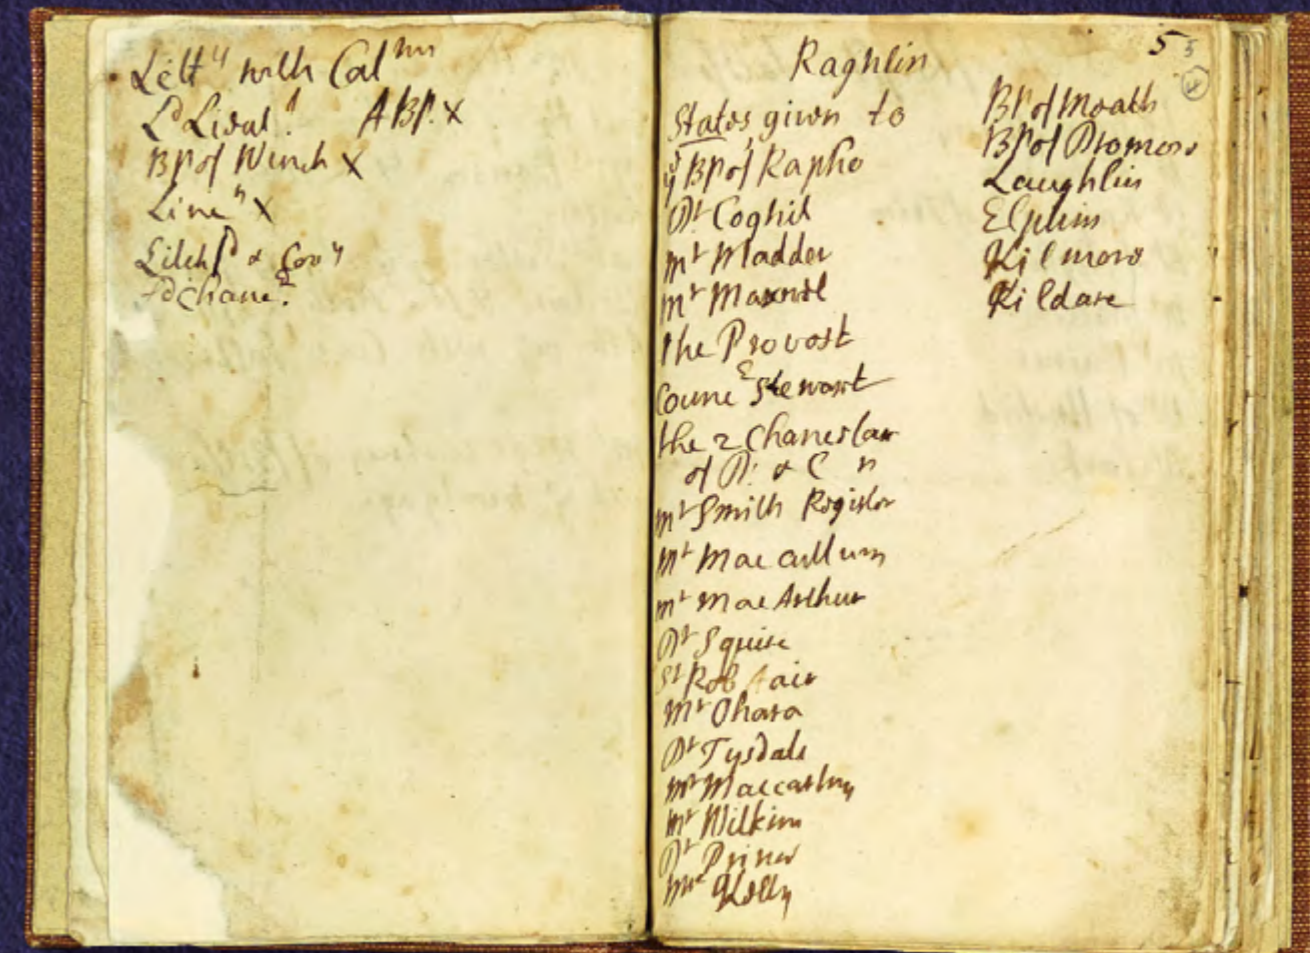 Lettrs with Cal
Ld Lieut. ABP. x
BP of Winch x
Linc n x
Litchfd & Cov
Ld Chanc
5 5
4
Raghlin
States given to
ye BP of Rapho
Dr Coghil
Mr Madder
Mr Maxwel
the Provost
Counc Stewart
the 2 Chancslaw
of D: & C n
Mr Smith Register
Mr Mac cullum
Mr Mac Arthur
Dr Squire
Sr Rob
Mr Ohara
Dr Tysdale
Mr Maccartny
Mr Wilkins
Dr
Kelly
BP of Meath
BP of Dromore
Laughlin
Elphin
Kilmore
Kildare